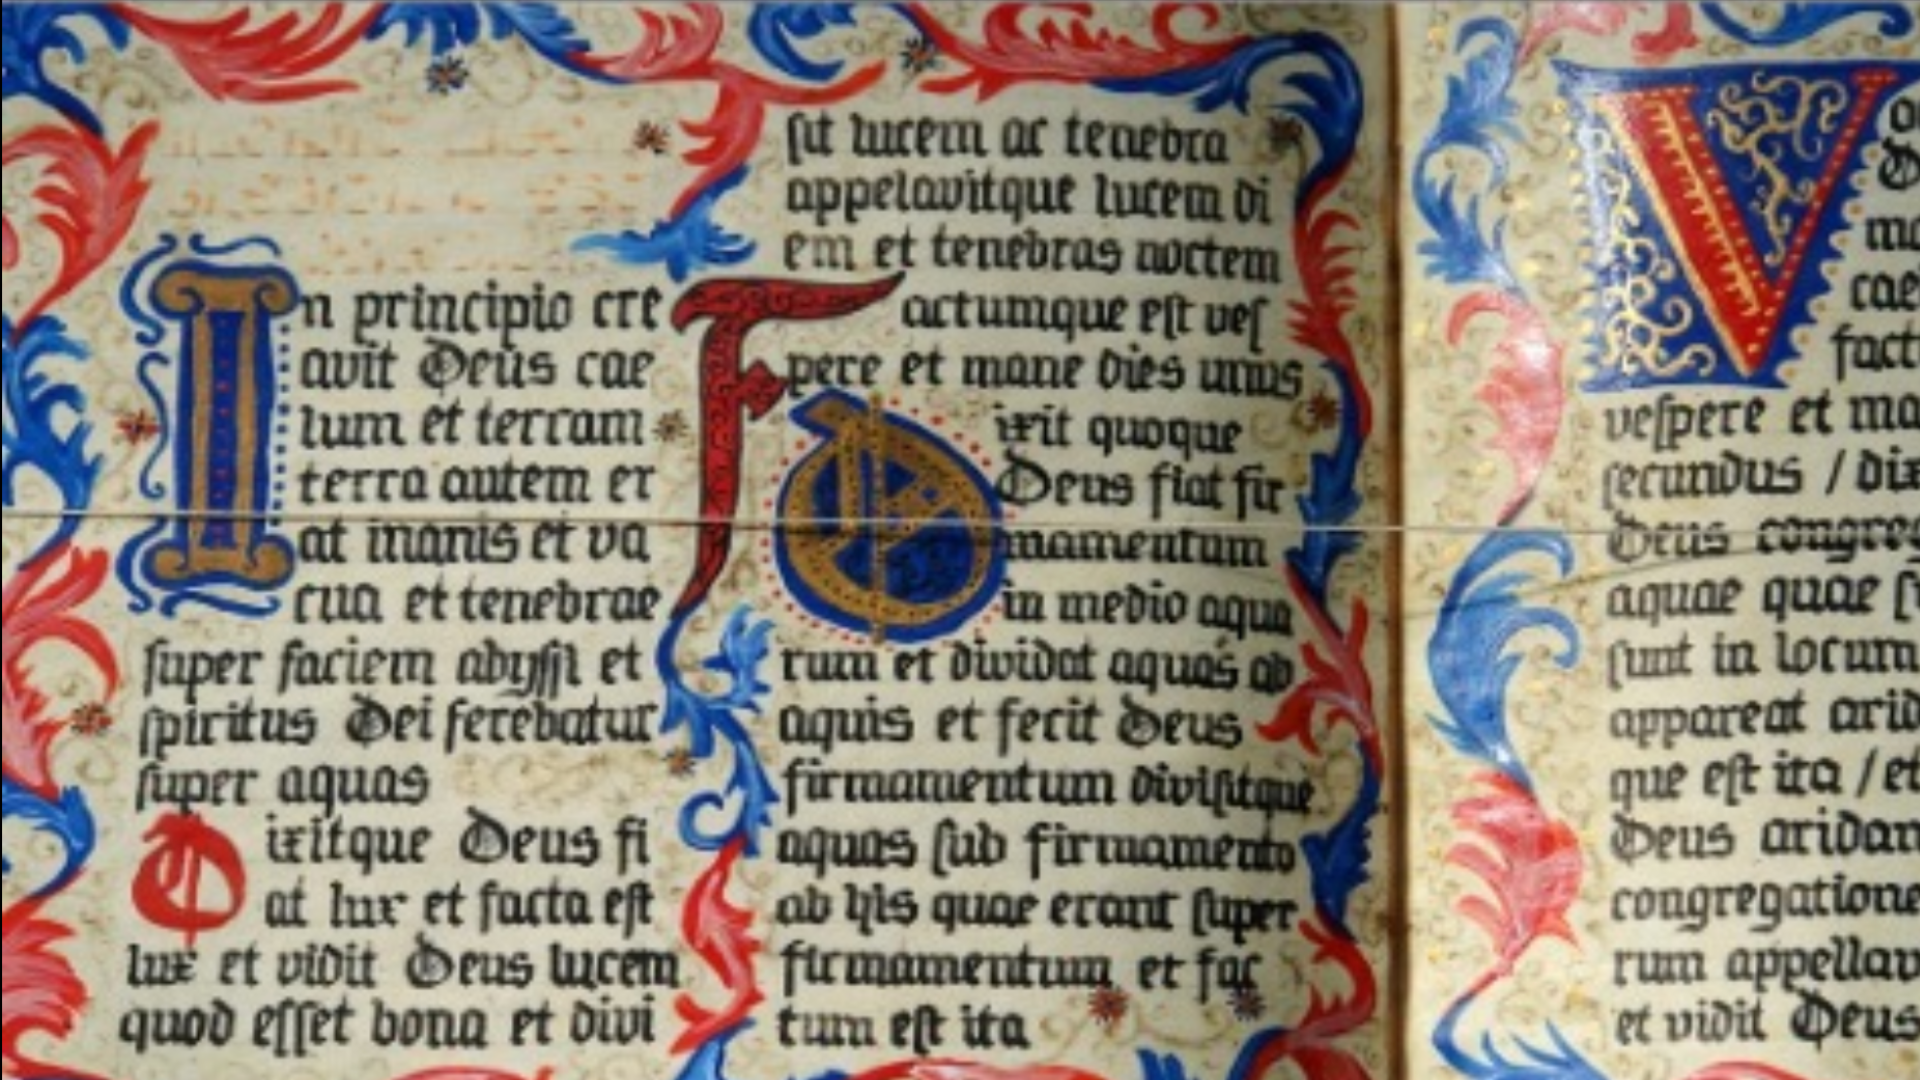 In principio cre
avit Deus cae
lum et terram
terra autem er
at inanis et va
cua et tenebrae
super faciem abyssi et
spiritus Dei ferebatur
super aquas
Dixitque Deus fi
at lux et facta est
lux et vidit Deus lucem
quod esset bona et divi
sit lucem ac tenebra
appelavitque lucem di
em et tenebras noctem
Factumque est ves
pere et mane dies unus
Dixit quoque
Deus fiat fir
mamentum
in medio aqua
rum et dividat aquas ab
aquis et fecit Deus
firmamentum divisitque
aquas sub firmamento
ab his quae erant super
firmamentum et fac
tum est ita
V
cae
fact
vespere et ma
secundus / dix
Deus congreg
aquae quae s
sunt in locum
appareat arid
que est ita / et
Deus aridam
congregatione
rum appellav
et vidit Deus